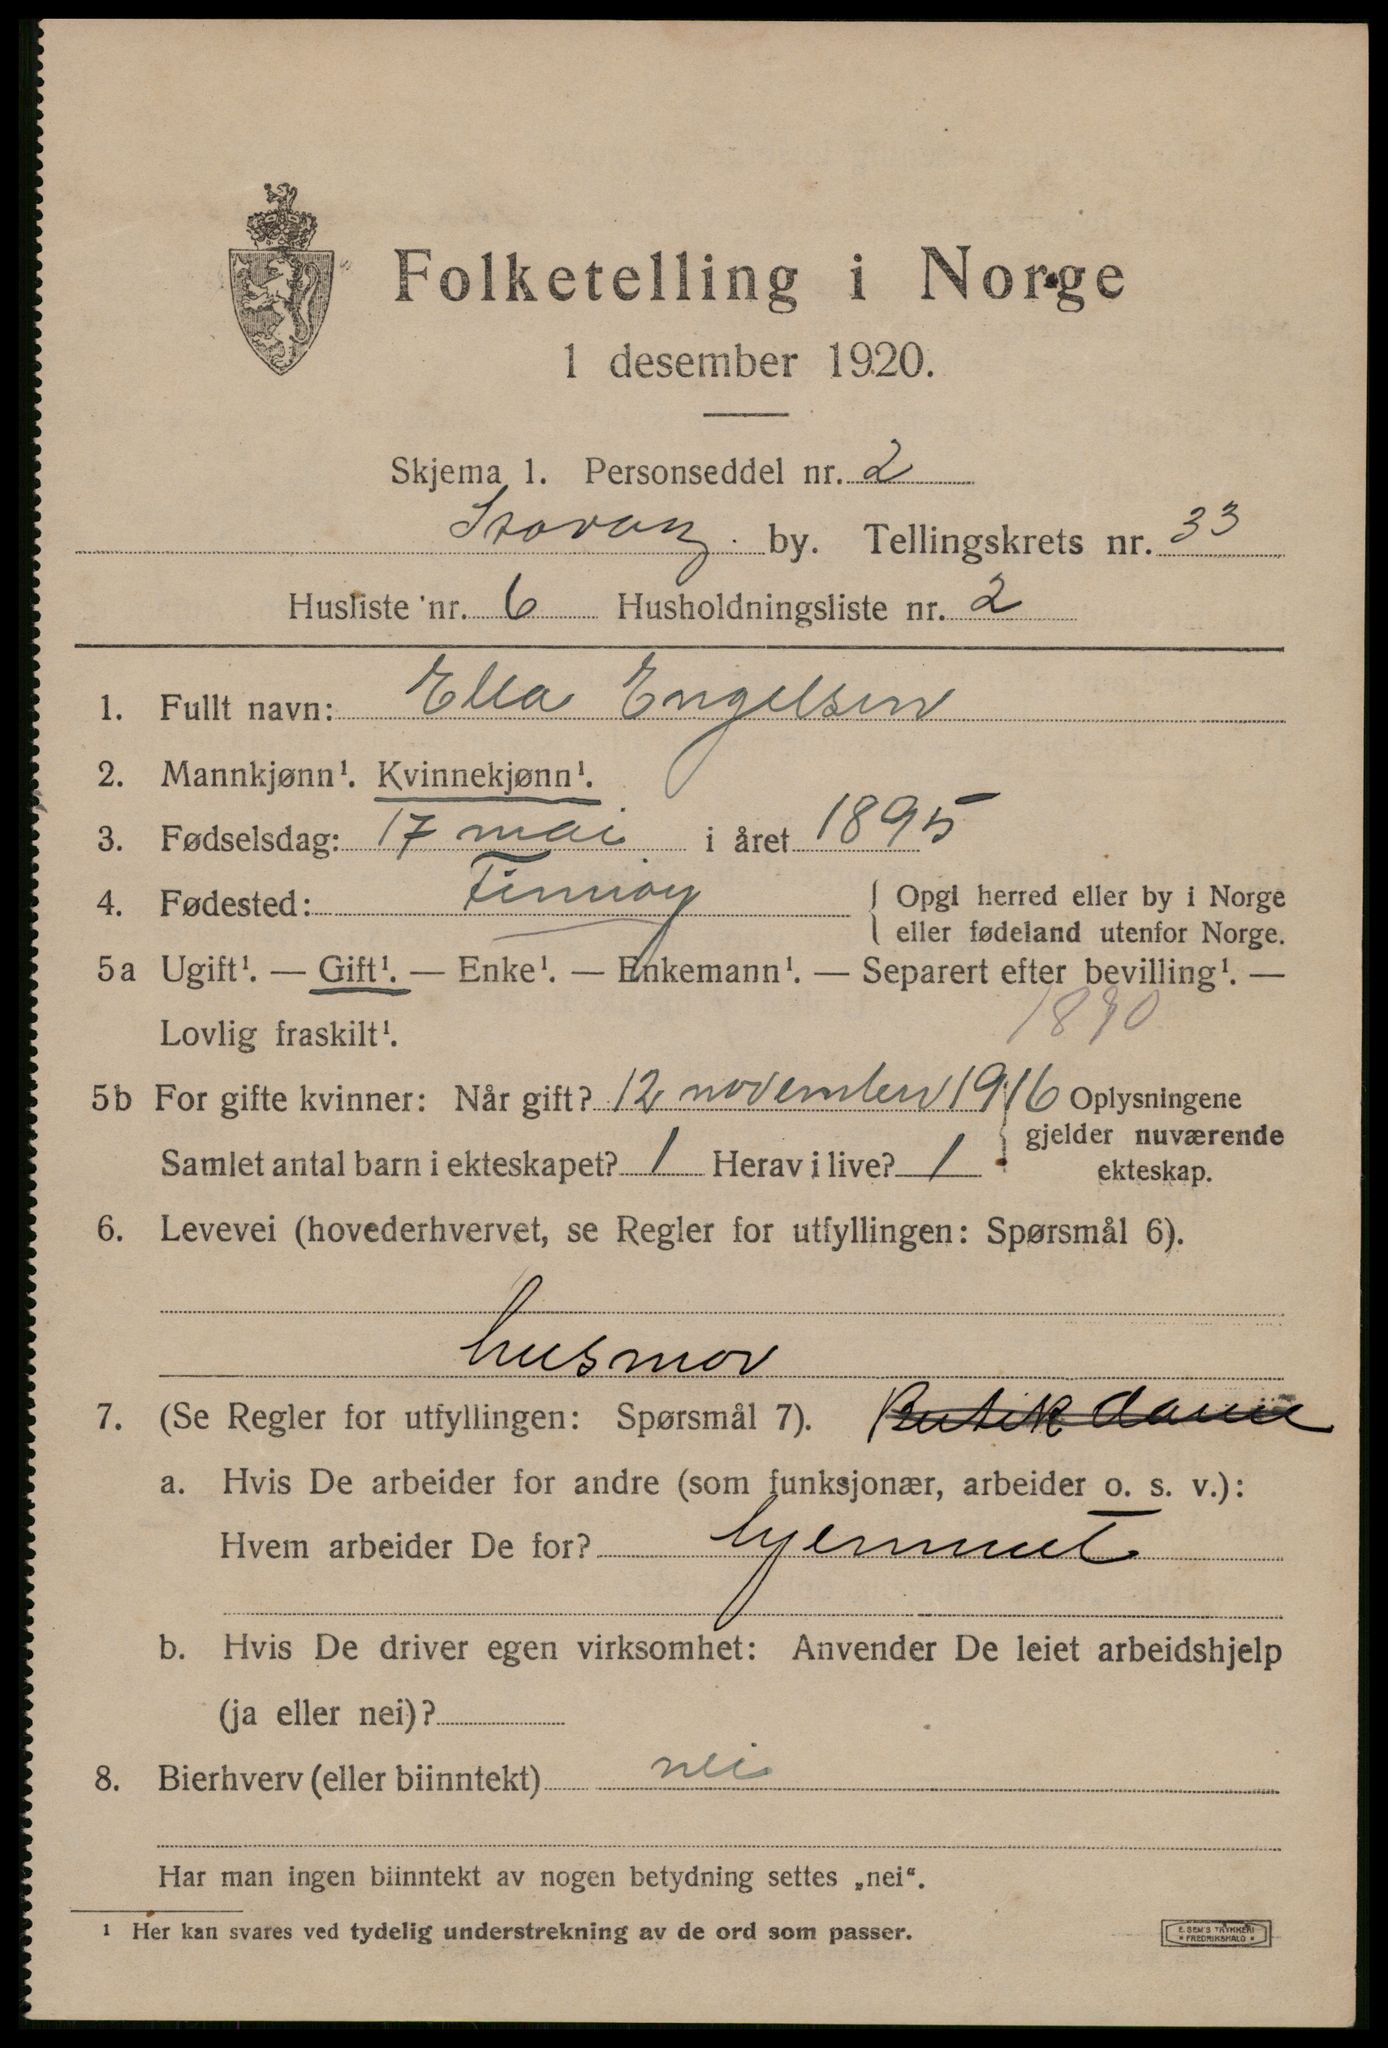 Folketelling i Norge
1 desember 1920.
Skjema 1. Personseddel nr. 2
Stavang. by. Tellingskrets nr. 33
Husliste nr. 6 Husholdningsliste nr. 2
1. Fullt navn: Ella Engelsen
2. Mannkjønn¹. Kvinnekjønn¹.
3. Fødselsdag: 17 mai i året 1895
4. Fødested: Finnøy { Opgi herred eller by i Norge
eller fødeland utenfor Norge.
5a Ugift¹. — Gift¹. — Enke¹. — Enkemann¹. — Separert efter bevilling¹. —
Lovlig fraskilt¹.
5b For gifte kvinner: Når gift? 12 november 1916 Oplysningene
gjelder nuværende
Samlet antal barn i ekteskapet? 1 Herav i live? 1 ekteskap.
6. Levevei (hovederhvervet, se Regler for utfyllingen: Spørsmål 6).
husmor
7. (Se Regler for utfyllingen: Spørsmål 7). Butik dame
a. Hvis De arbeider for andre (som funksjonær, arbeider o. s. v.):
Hvem arbeider De for? hjemmet
b. Hvis De driver egen virksomhet: Anvender De leiet arbeidshjelp
(ja eller nei)?
8. Bierhverv (eller biinntekt) nei
Har man ingen biinntekt av nogen betydning settes „nei“.
¹ Her kan svares ved tydelig understrekning av de ord som passer.
E. SEM'S TRYKKERI
* FREDRIKSHALD *